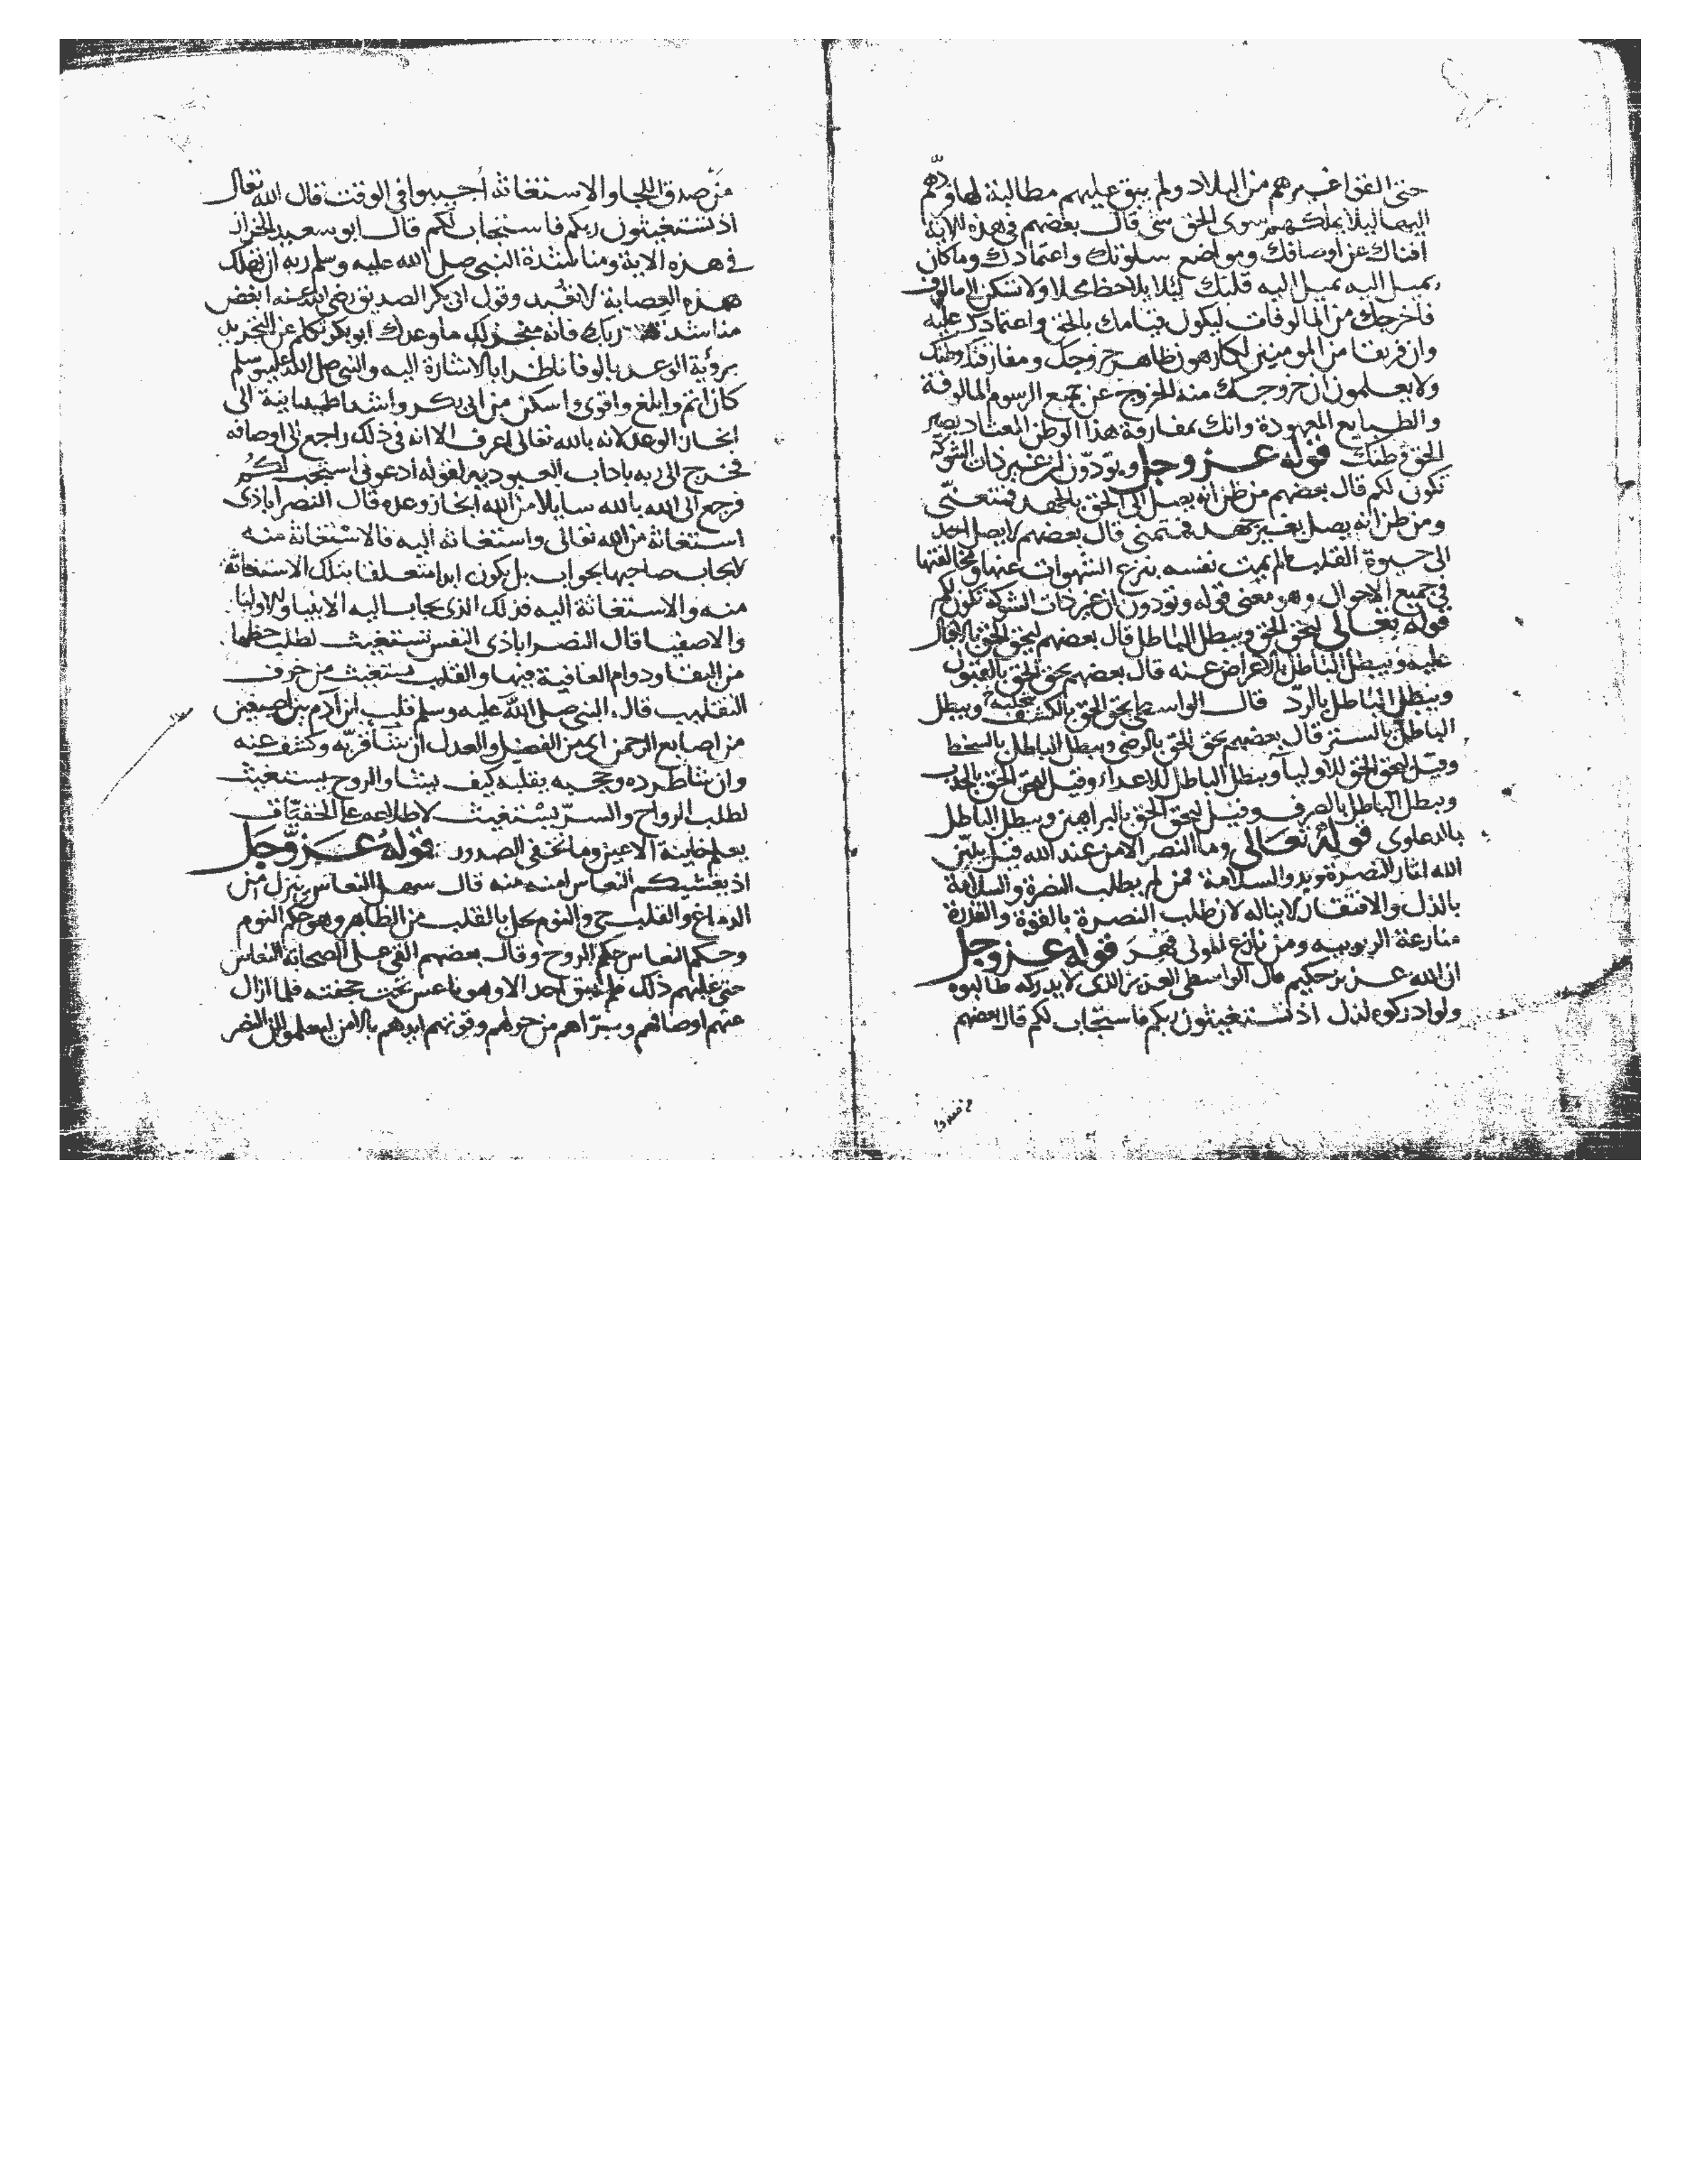 حتى الفوا غيرهم من البلاد ولم يبق عليهم مطالبة لها ودهم
اليها ليلا يملكهم سوى الحق شى قال بعضهم فى هذه الاية
افناك عن اوصافك ومواضع سلوتك واعتمادك وما كان
يميل اليه قلبك ليلا يلاحظ محلا ولا تسكن الى مالوف
فاخرجك من المالوفات ليكون قيامك بالحق واعتمادك عليه
وان فريقا من المومنين لكارهون ظاهر خروجك ومفارقتك وطنك
ولا يعلمون ان خروجك منه للخروج عن جميع الرسوم المالوفة
والطبايع المعهودة وانك بمفارقة هذا الوطن المعتاد يصير
الحق وطنك قوله عز وجل وتودون ان غير ذات الشوكة
تكون لكم قال بعضهم من ظن انه يصل الى الحق بالجهد فمتعنى
ومن ظن انه يصل بغير جهد فمتمنى قال بعضهم لا يصل احد
الى حيوة القلب ما لم يمت نفسه بنزع الشهوات عنها ومخالفتها
فى جميع الاحوال وهو معنى قوله وتودون ان غير ذات الشوكة تكون لكم
قوله تعالى ليحق الحق ويبطل الباطل قال بعضهم ليحق الحق بالاقبال
عليه ويبطل الباطل بالاعراض عنه قال بعضهم يحق الحق بالقبول
ويبطل الباطل بالرد قال الواسطى يحق الحق بتجليه بالكشف ويبطل
الباطل بالستر قال بعضهم يحق الحق بالرضى ويبطل الباطل بالسخط
وقيل ليحق الحق للاوليا ويبطل الباطل للاعداء وقيل ليحق الحق بالجذب
ويبطل الباطل بالصرف وقيل ليحق الحق بالبراهين ويبطل الباطل
بالدعاوى قوله تعالى وما النصر الا من عند الله قيل بين
الله اثار النصرة وبدو السلامة فمن لم يطلب النصرة والسلامة
بالذل والافتقار لا يناله لان طلب النصرة بالقوة والقدرة
منازعة الربوبيه ومن نازع المولى قهر قوله عز وجل
ان الله عزيز حكيم قال الواسطى العزيز الذى لا يدركه طالبوه
ولو ادركوه لذل اذ تستغيثون ربكم فاستجاب لكم قال بعضهم
من صدق اللجا والاستغاثة اجيبوا فى الوقت قال الله تعالى
اذ تستغيثون ربكم فاستجاب لكم قال ابو سعيد الخراز
فى هذه الاية ومناشدة النبى صلى الله عليه وسلم ربه ان تهلك
هذه العصابة لا تعبد وقول ابى بكر الصديق رضى الله عنه ابعض
مناشدتك ربك فانه منجز لك ما وعدك ابو بكر تكلم عن التجريد
برؤية الوعد بالوفا ناظرا بالاشارة اليه والنبى صلى الله عليه وسلم
كان اتم وابلغ واقوى واسكن من ابى بكر واشد طمانينة الى
انجاز الوعد لانه بالله تعالى اعرف الا انه فى ذلك راجع الى اوصافه
فخرج الى ربه باداب العبوديه لقوله ادعونى استجب لكم
فرجع الى الله بالله سايلا من الله انجاز وعده قال النصراباذى
استغاثة من الله تعالى واستغاثة اليه فالاستغاثة منه
لا يجاب صاحبها بجواب بل يكون ابدا متعلقا بتلك الاستغاثة
منه والاستغاثة اليه فذلك الذى يجاب اليه الانبيا والاوليا
والاصفيا قال النصراباذى النفس تستغيث لطلب حظها
من البقا ودوام العافية فيها والقلب يستغيث من خوف
التقليب قال النبى صلى الله عليه وسلم قلب ابن آدم بين اصبعين
من اصابع الرحمن اى بين الفضل والعدل ان شا قربه وكشف عنه
وان شا طرده وحجبه يقلبه كيف يشا والروح يستغيث
لطلب الرواح والسر يستغيث لاطلاعه على الخفيات
يعلم خاينة الاعين وما تخفى الصدور قوله عز وجل
اذ يغشيكم النعاس امنه منه قال سهل النعاس ينزل من
الدماغ والقلب حى والنوم يحل بالقلب من الظاهر وهو حكم النوم
وحكم النعاس حكم الروح وقال بعضهم القى على الصحابة النعاس
حتى عليهم ذلك فلم يبق احد الا وهو ناعس تحت حجفته فلما ازال
عنهم اوصافهم وبراهم من حولهم وقوتهم ايدهم بالامن ليعلموا ان النصر